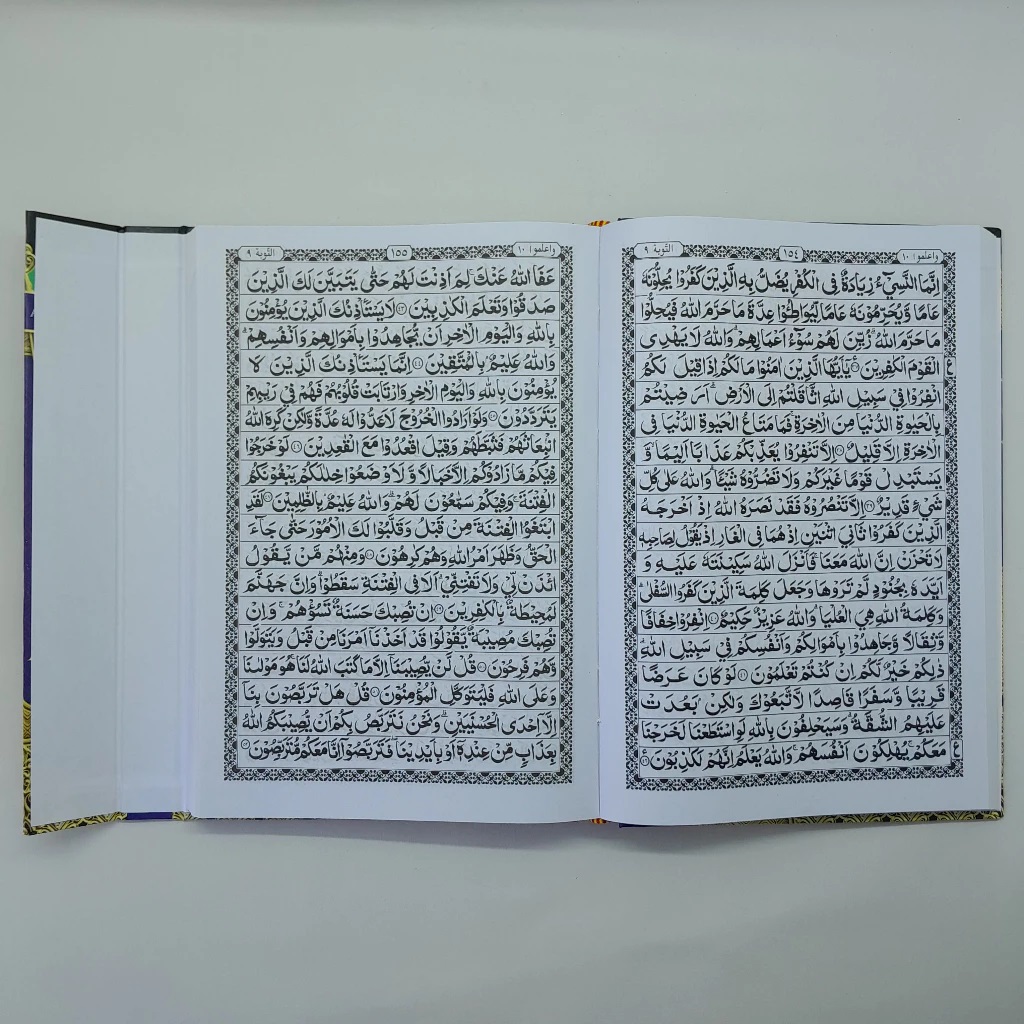 واعلموا ١٠ ١٥٤ التَّوبة ٩
اِنَّمَا النَّسِيْٓءُ زِيَادَةٌ فِى الْكُفْرِ يُضَلُّ بِهِ الَّذِيْنَ كَفَرُوْا يُحِلُّوْنَهٗ
عَامًا وَّيُحَرِّمُوْنَهٗ عَامًا لِّيُوَاطِـُٔوْا عِدَّةَ مَا حَرَّمَ اللّٰهُ فَيُحِلُّوْا
مَا حَرَّمَ اللّٰهُ ۗ زُيِّنَ لَهُمْ سُوْۤءُ اَعْمَالِهِمْ ۗ وَاللّٰهُ لَا يَهْدِى
الْقَوْمَ الْكٰفِرِيْنَ ۝٣٧ يٰٓاَيُّهَا الَّذِيْنَ اٰمَنُوْا مَا لَكُمْ اِذَا قِيْلَ لَكُمُ
انْفِرُوْا فِيْ سَبِيْلِ اللّٰهِ اثَّاقَلْتُمْ اِلَى الْاَرْضِ ۗ اَرَضِيْتُمْ
بِالْحَيٰوةِ الدُّنْيَا مِنَ الْاٰخِرَةِ ۚ فَمَا مَتَاعُ الْحَيٰوةِ الدُّنْيَا فِى
الْاٰخِرَةِ اِلَّا قَلِيْلٌ ۝٣٨ اِلَّا تَنْفِرُوْا يُعَذِّبْكُمْ عَذَابًا اَلِيْمًا ۙ وَّ
يَسْتَبْدِلْ قَوْمًا غَيْرَكُمْ وَلَا تَضُرُّوْهُ شَيْـًٔا ۗ وَاللّٰهُ عَلٰى كُلِّ
شَيْءٍ قَدِيْرٌ ۝٣٩ اِلَّا تَنْصُرُوْهُ فَقَدْ نَصَرَهُ اللّٰهُ اِذْ اَخْرَجَهُ
الَّذِيْنَ كَفَرُوْا ثَانِيَ اثْنَيْنِ اِذْ هُمَا فِى الْغَارِ اِذْ يَقُوْلُ لِصَاحِبِهٖ
لَا تَحْزَنْ اِنَّ اللّٰهَ مَعَنَا ۚ فَاَنْزَلَ اللّٰهُ سَكِيْنَتَهٗ عَلَيْهِ وَ
اَيَّدَهٗ بِجُنُوْدٍ لَّمْ تَرَوْهَا وَجَعَلَ كَلِمَةَ الَّذِيْنَ كَفَرُوا السُّفْلٰى ۗ
وَكَلِمَةُ اللّٰهِ هِيَ الْعُلْيَا ۗ وَاللّٰهُ عَزِيْزٌ حَكِيْمٌ ۝٤٠ اِنْفِرُوْا خِفَافًا
وَّثِقَالًا وَّجَاهِدُوْا بِاَمْوَالِكُمْ وَاَنْفُسِكُمْ فِيْ سَبِيْلِ اللّٰهِ ۗ
ذٰلِكُمْ خَيْرٌ لَّكُمْ اِنْ كُنْتُمْ تَعْلَمُوْنَ ۝٤١ لَوْ كَانَ عَرَضًا
قَرِيْبًا وَّسَفَرًا قَاصِدًا لَّاتَّبَعُوْكَ وَلٰكِنْۢ بَعُدَتْ
عَلَيْهِمُ الشُّقَّةُ ۗ وَسَيَحْلِفُوْنَ بِاللّٰهِ لَوِ اسْتَطَعْنَا لَخَرَجْنَا
مَعَكُمْ ۚ يُهْلِكُوْنَ اَنْفُسَهُمْ ۚ وَاللّٰهُ يَعْلَمُ اِنَّهُمْ لَكٰذِبُوْنَ ۝٤٢
واعلموا ١٠ ١٥٥ التَّوبة ٩
عَفَا اللّٰهُ عَنْكَ ۚ لِمَ اَذِنْتَ لَهُمْ حَتّٰى يَتَبَيَّنَ لَكَ الَّذِيْنَ
صَدَقُوْا وَتَعْلَمَ الْكٰذِبِيْنَ ۝٤٣ لَا يَسْتَأْذِنُكَ الَّذِيْنَ يُؤْمِنُوْنَ
بِاللّٰهِ وَالْيَوْمِ الْاٰخِرِ اَنْ يُّجَاهِدُوْا بِاَمْوَالِهِمْ وَاَنْفُسِهِمْ ۗ
وَاللّٰهُ عَلِيْمٌۢ بِالْمُتَّقِيْنَ ۝٤٤ اِنَّمَا يَسْتَأْذِنُكَ الَّذِيْنَ لَا
يُؤْمِنُوْنَ بِاللّٰهِ وَالْيَوْمِ الْاٰخِرِ وَارْتَابَتْ قُلُوْبُهُمْ فَهُمْ فِيْ رَيْبِهِمْ
يَتَرَدَّدُوْنَ ۝٤٥ وَلَوْ اَرَادُوا الْخُرُوْجَ لَاَعَدُّوْا لَهٗ عُدَّةً وَّلٰكِنْ كَرِهَ اللّٰهُ
انْۢبِعَاثَهُمْ فَثَبَّطَهُمْ وَقِيْلَ اقْعُدُوْا مَعَ الْقٰعِدِيْنَ ۝٤٦ لَوْ خَرَجُوْا
فِيْكُمْ مَّا زَادُوْكُمْ اِلَّا خَبَالًا وَّلَا۟اَوْضَعُوْا خِلٰلَكُمْ يَبْغُوْنَكُمُ
الْفِتْنَةَ ۚ وَفِيْكُمْ سَمّٰعُوْنَ لَهُمْ ۗ وَاللّٰهُ عَلِيْمٌۢ بِالظّٰلِمِيْنَ ۝٤٧ لَقَدِ
ابْتَغَوُا الْفِتْنَةَ مِنْ قَبْلُ وَقَلَّبُوْا لَكَ الْاُمُوْرَ حَتّٰى جَاۤءَ
الْحَقُّ وَظَهَرَ اَمْرُ اللّٰهِ وَهُمْ كٰرِهُوْنَ ۝٤٨ وَمِنْهُمْ مَّنْ يَّقُوْلُ
ائْذَنْ لِّيْ وَلَا تَفْتِنِّيْ ۗ اَلَا فِى الْفِتْنَةِ سَقَطُوْا ۗ وَاِنَّ جَهَنَّمَ
لَمُحِيْطَةٌۢ بِالْكٰفِرِيْنَ ۝٤٩ اِنْ تُصِبْكَ حَسَنَةٌ تَسُؤْهُمْ ۚ وَاِنْ
تُصِبْكَ مُصِيْبَةٌ يَّقُوْلُوْا قَدْ اَخَذْنَآ اَمْرَنَا مِنْ قَبْلُ وَيَتَوَلَّوْا
وَّهُمْ فَرِحُوْنَ ۝٥٠ قُلْ لَّنْ يُّصِيْبَنَآ اِلَّا مَا كَتَبَ اللّٰهُ لَنَا ۚ هُوَ مَوْلٰىنَا ۚ
وَعَلَى اللّٰهِ فَلْيَتَوَكَّلِ الْمُؤْمِنُوْنَ ۝٥١ قُلْ هَلْ تَرَبَّصُوْنَ بِنَآ
اِلَّآ اِحْدَى الْحُسْنَيَيْنِ ۗ وَنَحْنُ نَتَرَبَّصُ بِكُمْ اَنْ يُّصِيْبَكُمُ اللّٰهُ
بِعَذَابٍ مِّنْ عِنْدِهٖٓ اَوْ بِاَيْدِيْنَا ۖ فَتَرَبَّصُوْٓا اِنَّا مَعَكُمْ مُّتَرَبِّصُوْنَ ۝٥٢